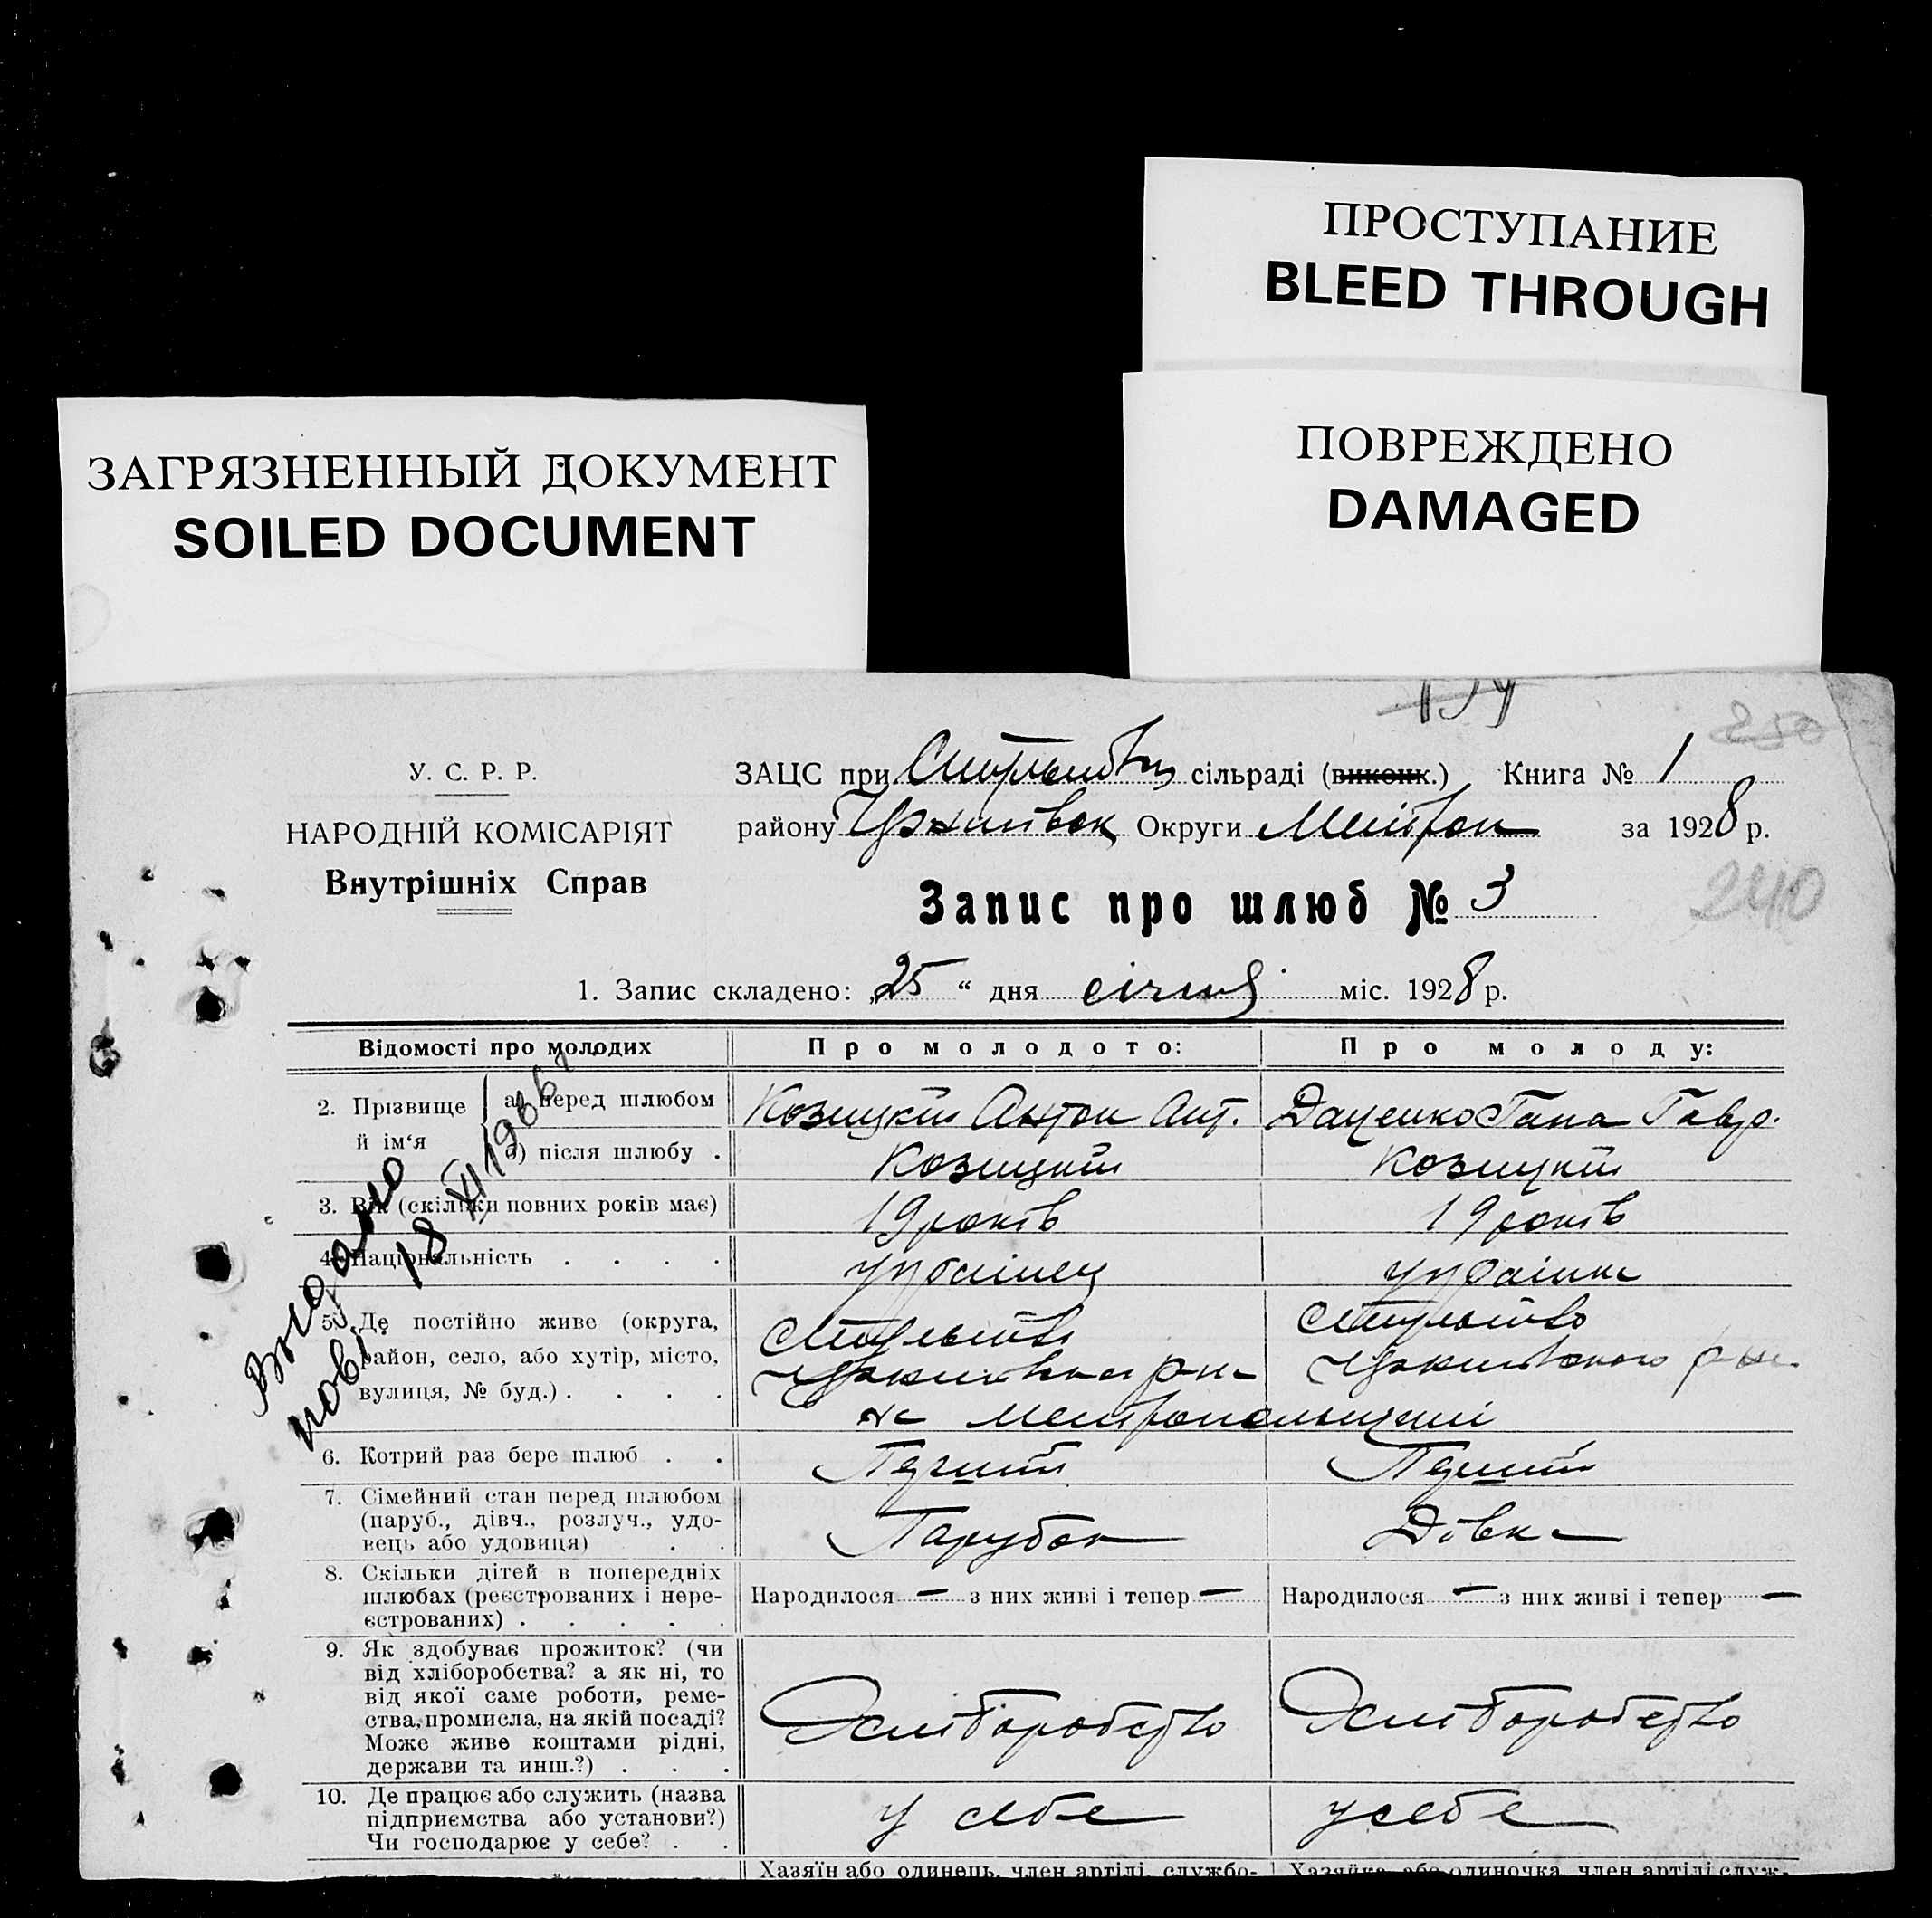 ПРОСТУПАНИЕ
BLEED THROUGH
ЗАГРЯЗНЕННЫЙ ДОКУМЕНТ
SOILED DOCUMENT
ПОВРЕЖДЕНО
DAMAGED
250
У. С. Р. Р.
НАРОДНІЙ КОМІСАРІЯТ
Внутрішніх Справ
ЗАЦС при сільраді (виконк.) Книга № 1
району Округи за 1928 р.
240
Запис про шлюб № 3
1. Запис складено: „25“ дня січня міс. 1928 р.
Відомості про молодих Про молодого: Про молоду:
2. Прізвище й ім‘я
а) перед шлюбом Козицкий Антон Ант. Даценко Гана Гавр.
б) після шлюбу . Козицкий Козицкий
3. Вік (скільки повних років має) 19 років 19 років
4. Національність . . . . українец українка
5. Де постійно живе (округа, район, село, або хутір, місто, вулиця, № буд.) . . . .
6. Котрий раз бере шлюб . . Перший Перший
7. Сімейний стан перед шлюбом (паруб., дівч., розлуч., удовець або удовиця) . . Парубок Дівка
8. Скільки дітей в попередніх шлюбах (реєстрованих і нереєстрованих) . . . . .
Народилося — з них живі і тепер — Народилося — з них живі і тепер —
9. Як здобуває прожиток? (чи від хліборобства? а як ні, то від якої саме роботи, ремества, промисла, на якій посаді? Може живе коштами рідні, держави та инш.?) . . .
Хліборобство Хліборобство
10. Де працює або служить (назва підприємства або установи?) Чи господарює у себе? . .
у себе у себе
Хазяїн або одинець, член артілі, службо- Хазяйка або одиночка, член артілі служ-
Выдано
18 XI 196